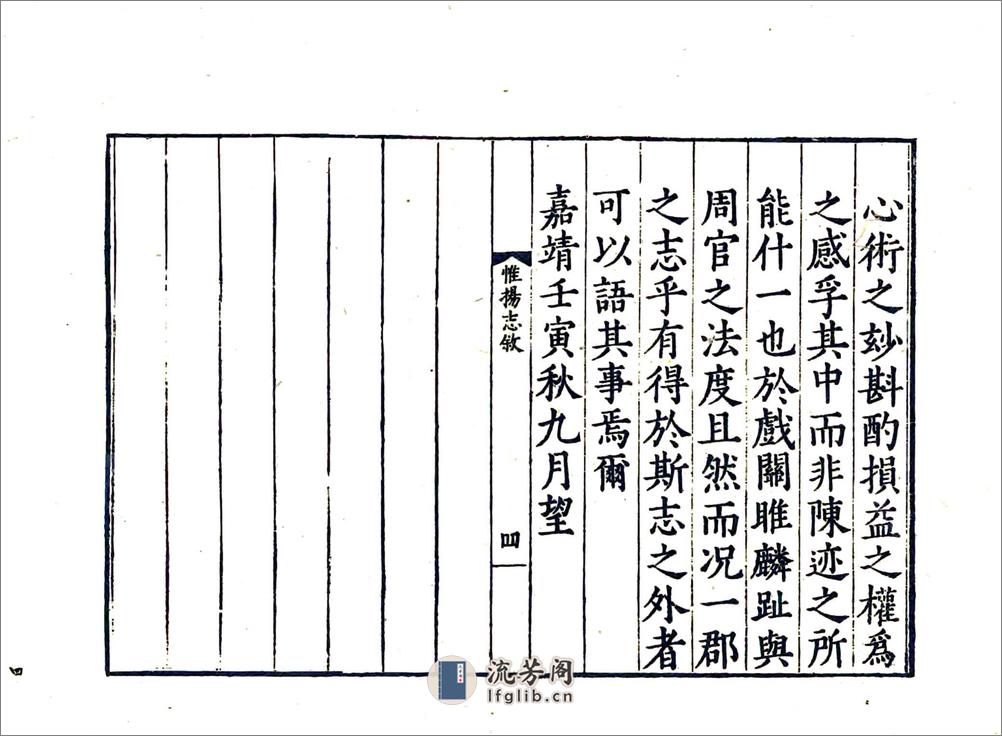 心術之玅斟酌損益之權爲
之感孚其中而非陳迹之所
能什一也於戲關睢麟趾與
周官之法度且然而况一郡
之志乎有得於斯志之外者
可以語其事焉爾
嘉靖壬寅秋九月望
惟揚志敘
四
四
流芳阁
lfglib.cn